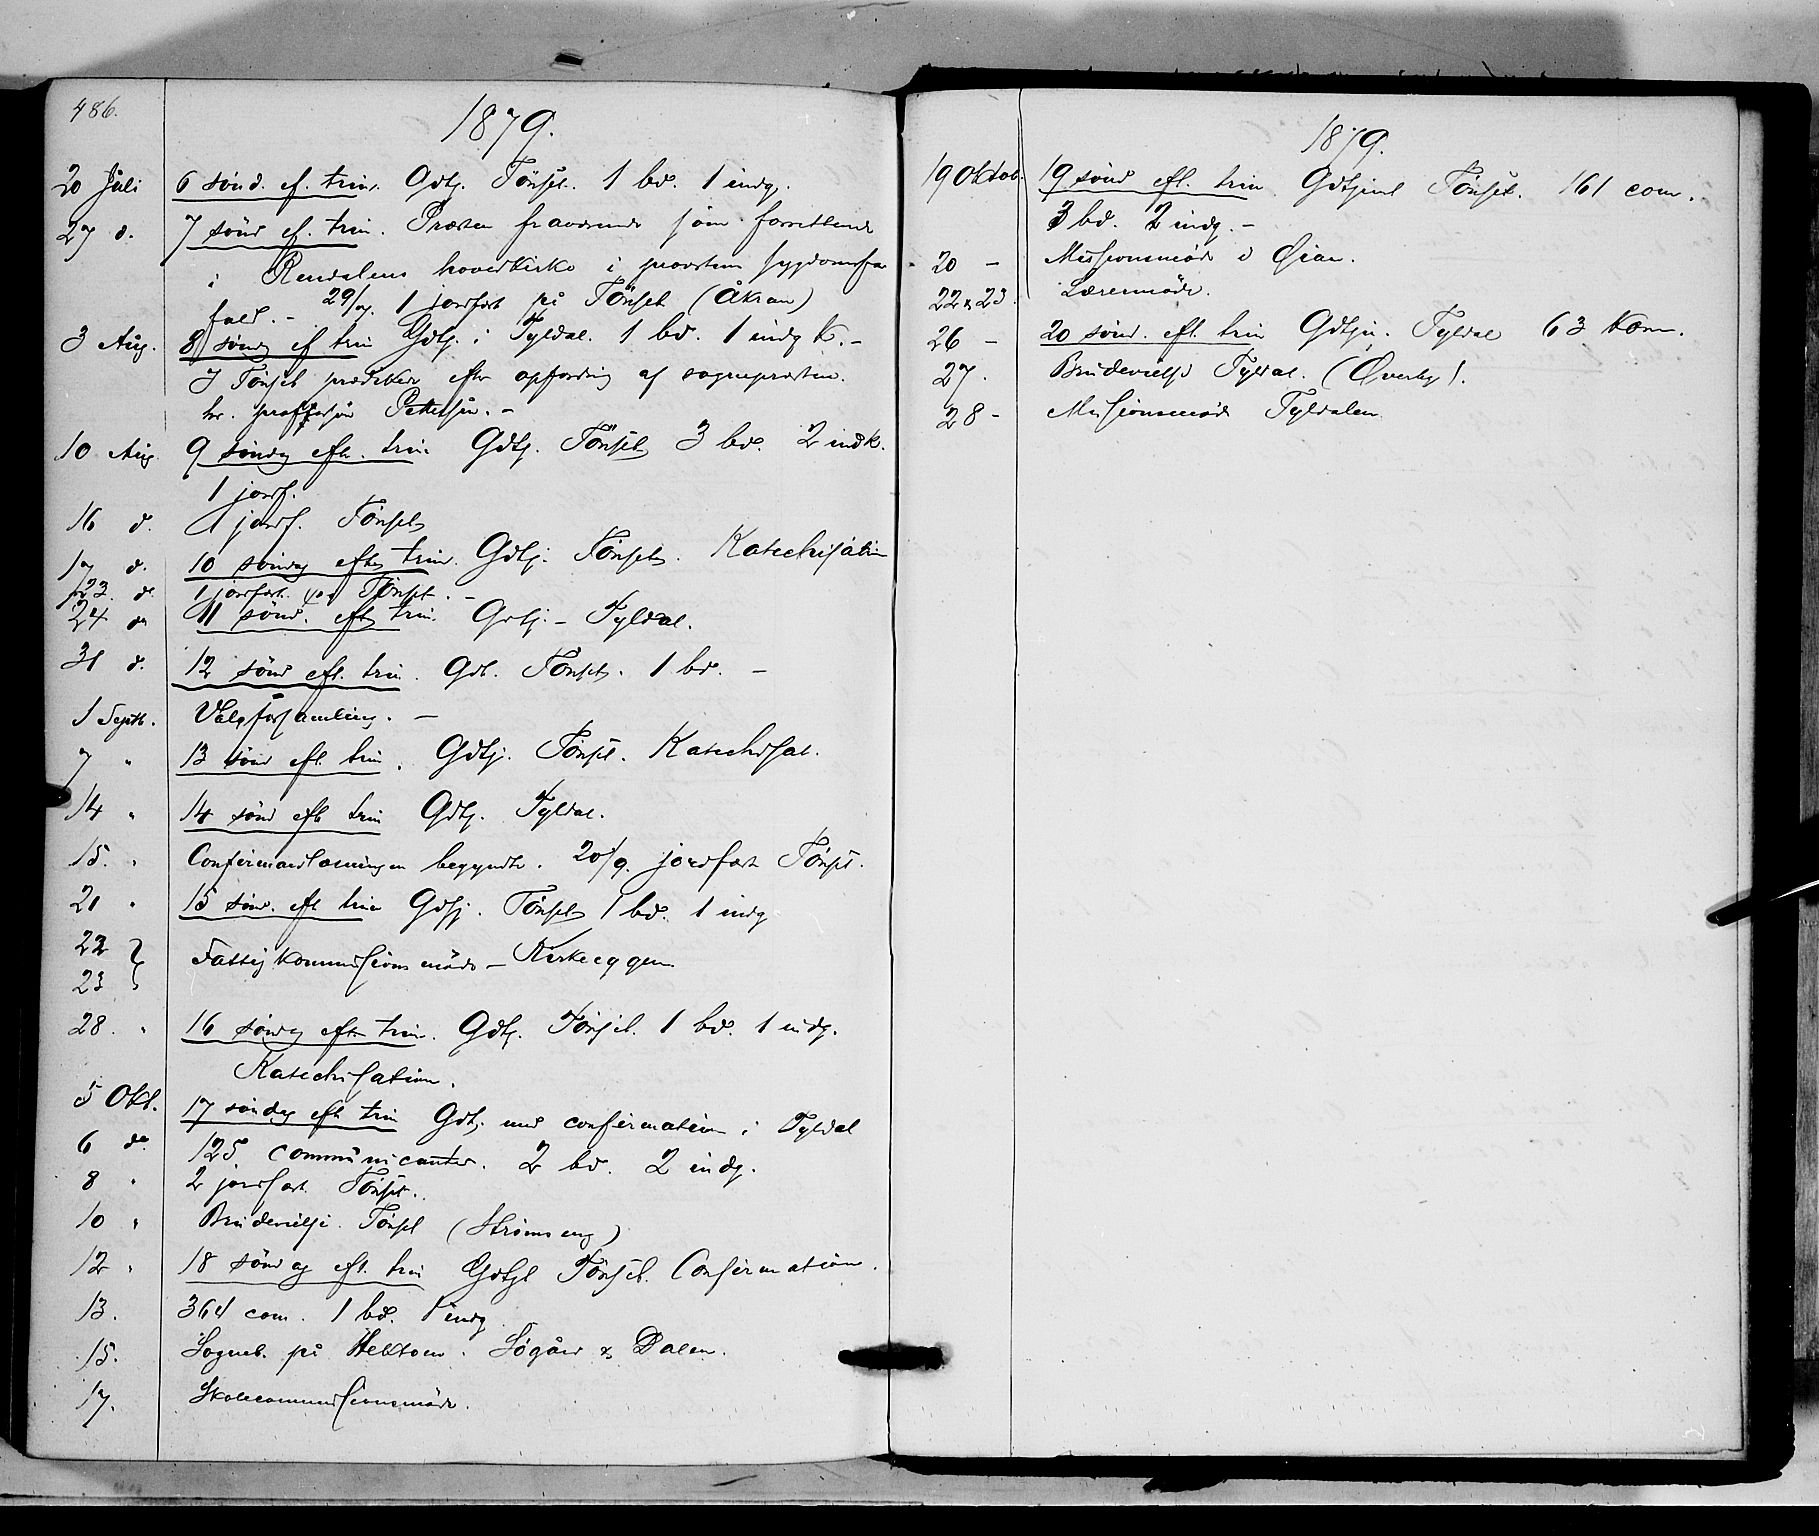 486.
1879.
20 Juli 6 sönd. ef. trin. Gdtj. Tönset. 1 bd. 1 indg.
27 d. 7 sönd ef. trin. Præsten fraværende som forrettende
i Rendalens hovedkirke i provstens sygdomsfor
fald. - 29/7. 1 jordfæst på Tönset (Åkran)
3 Aug. 8 söndg ef trin Gdtj. i Tyldal. 1 bd. 1 indg K. -
I Tönset prædikede efter opfordring af sognepresten
hr. professor Petersen. -
10 Aug. 9 söndag eft. trin Gdtj. Tönset 3 bd. 2 indk.
1 jordf.
16 d. 1 jordf. Tönset
17 d. 10 söndag efter trin. Gdtj. Tönset. Katechisation
23. d. 1 jordfæst. Tönset. -
24 do 11 sönd. eft trin. Gdtj. - Tyldal.
31 d. 12 sönd eft. trin. Gdt. Tönset. 1 bd. -
1 Septb. Valgforsamling. -
7 " 13 sönd eft trin. Gdtj. Tönset. Katechisat.
14 " 14 sönd eft trin Gdtj. Tyldal.
15. " Confirmandlæsningen begyndte. 20/9. jordfæst Tönset.
21 " 15 sönd. eft trin Gdtj. Tönset 1 bd. 1 indg
22 }
23 } Fattigkommissions möde - Kirkeeggen.
28. " 16 söndag efter trin. Gdtj. Tönset. 1 bd. 1 indg.
Katechisation.
5 Okt. 17 söndag eft trin Gdtj. med confirmation i Tyldal
6 do 125 communicanter. 2 bd. 2 indg.
8 " 2 jordfæst. Tönset.
10 " Brudevielse. Tönset (Strömseng)
12 " 18 söndag eft. trin Gdtjt Tönset. Confirmation.
13. 364 com. 1 bd. 1 indg
15. Sogneb. på Telstoen. Sögård & Dalen.
17. Skolecommissionsmöde.
1879.
19 Oktob. 19 sönd eft. trin Gdtjnst Tönset. 161 com.
3 bd. 2 indg. -
20 - Missionsmöde i Öian.
22 & 23. Læremöde.
26 - 20 sönd. eft. trin Gdtjn. Tyldal 63 kom.
27. Brudevielse Tyldal. (Øverby).
28 - Missionsmöde Tyldalen